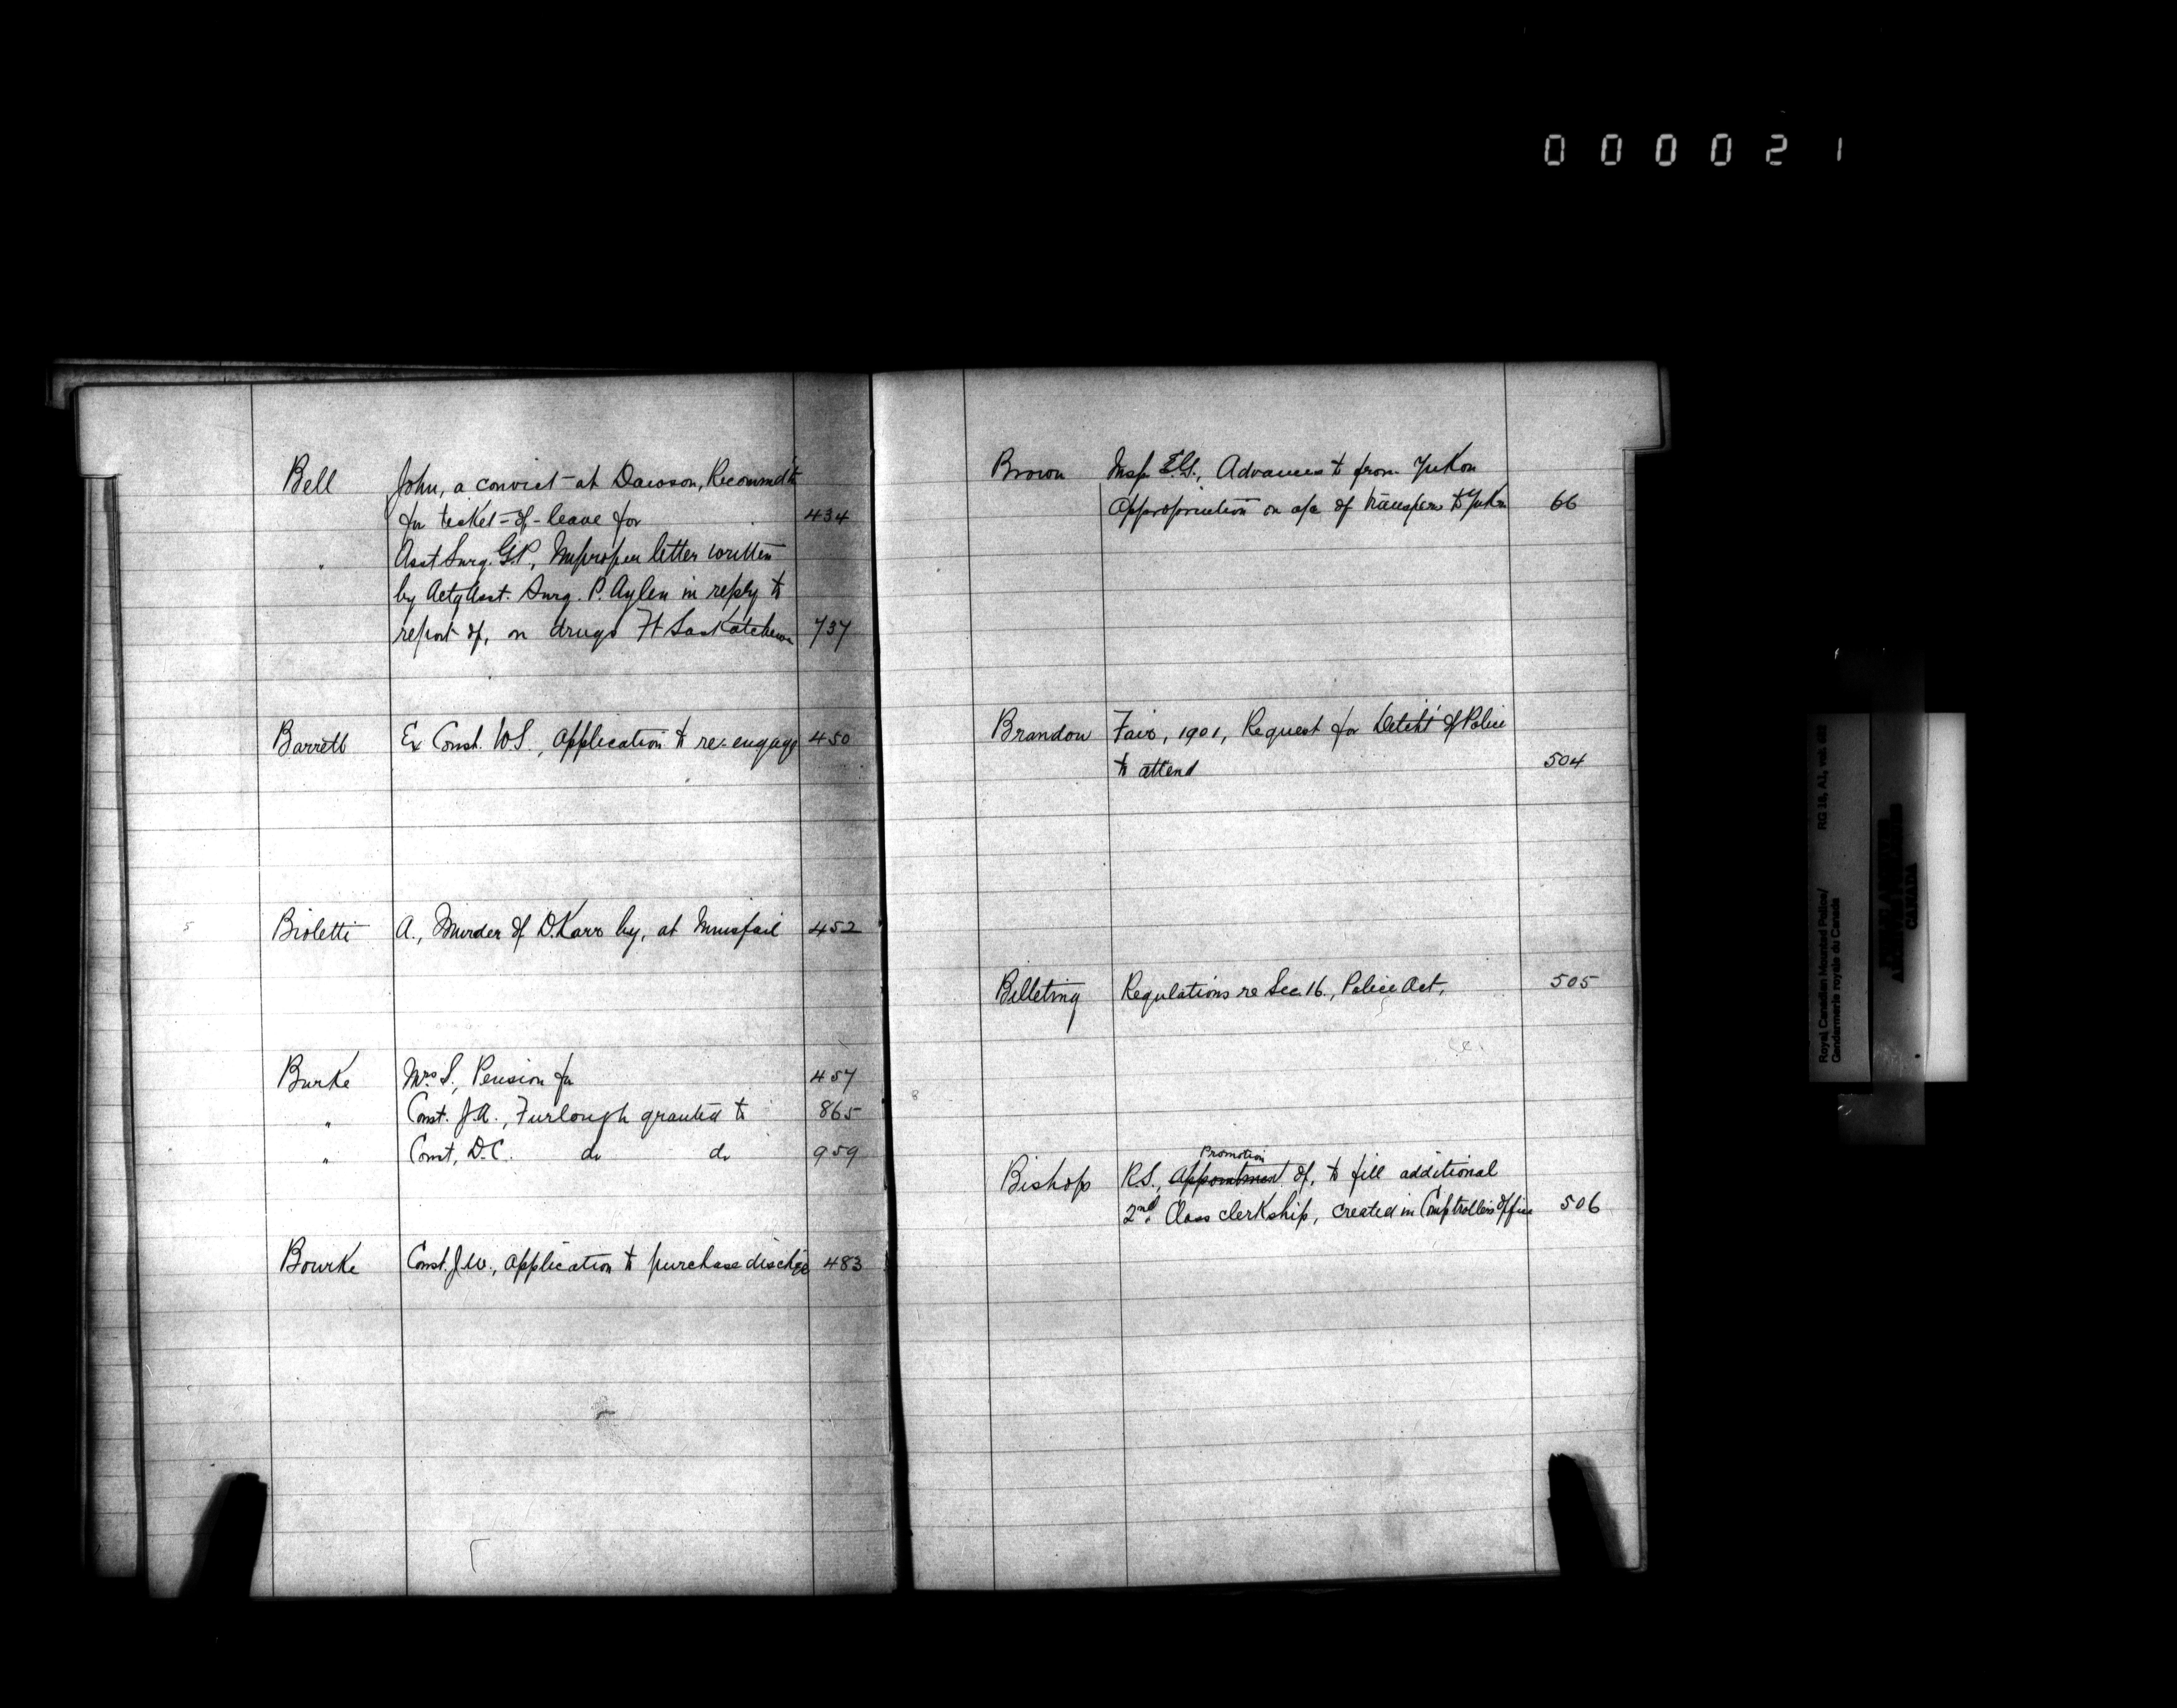 000021
Bell John, a convict at Dawson, Recommend'n
for ticket-of-leave for 434
" Asst Surg. G.P., Improper letter written
by Actg Asst. Surg. P. Aylen in reply to
report of, on drugs Ft Saskatchewan 737
Barrett Ex Const. W.S., Application to re-engage 450
Bioletti A., Murder of D. Karr by, at Innisfail 452
Burke Mrs S., Pension for 457
" Const. J.A., Furlough granted to 865
" Const, D.C. do do 959
Bourke Const. J.W., Application to purchase dischge 483
Brown Insp. Advances to from Yukon
Appropriation on a/c of transfer to Yukon 66
Brandon Fair, 1901, Request for Detcht of Police
to attend 504
Billeting Regulations re Sec. 16., Police Act, 505
Promotion
Bishop R.S., Appointment of, to fill additional
2nd Class clerkship, created in Comptroller's Office 506
Royal Canadian Mounted Police/ RG 18, A1, vol.
Gendarmerie royale du Canada
CANADA